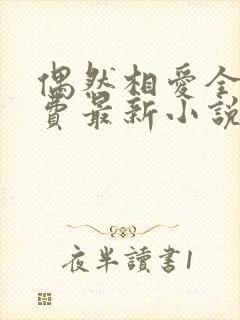 偶然相愛全
費最新小說
夜半讀書1